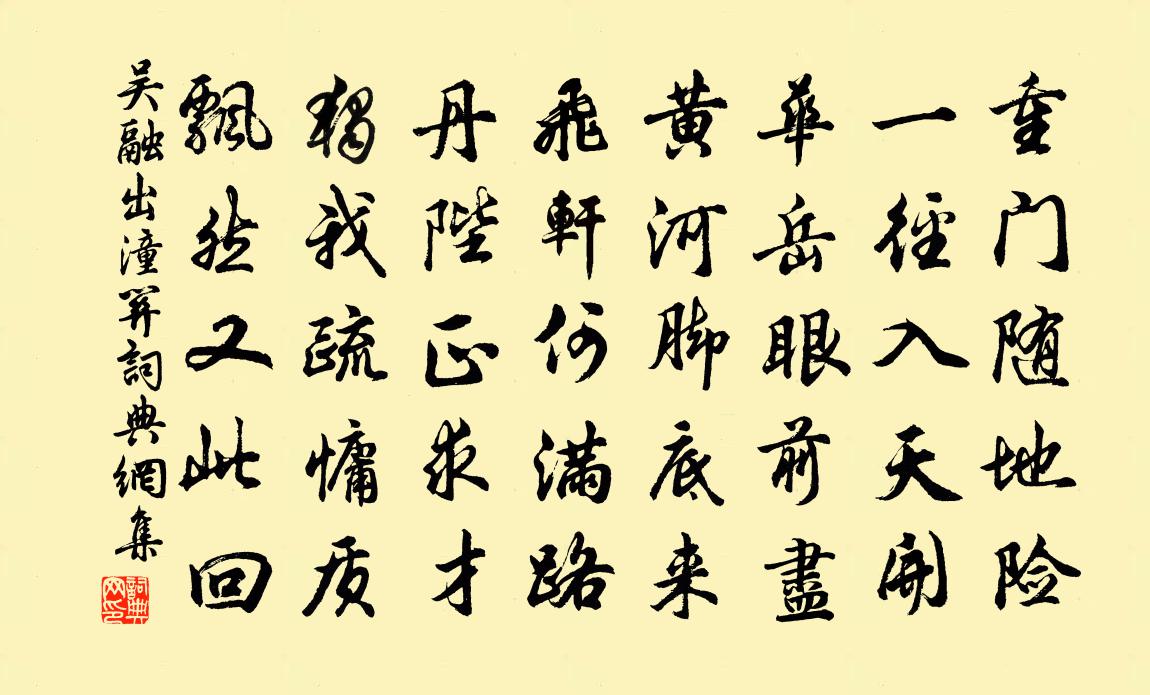 重门随地险
一径入天开
華岳眼前盡
黄河脚底来
飛軒何满路
丹陛正求才
独我疏慵质
飘然又此回
吴融出潼関詞典網集
詞典网印